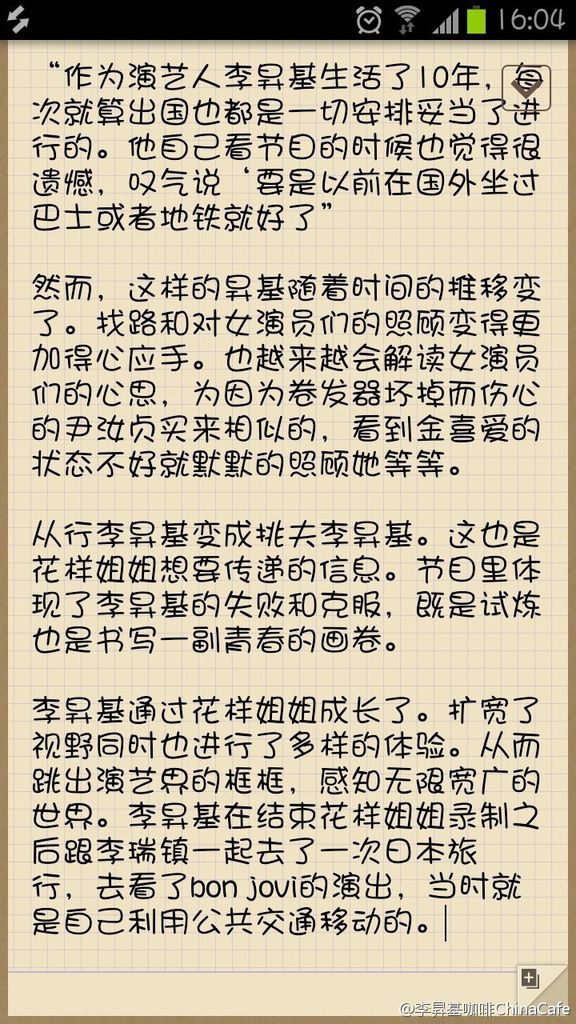 16:04
“作为演艺人李昇基生活了10年，每
次就算出国也都是一切安排妥当了进
行的。他自己看节目的时候也觉得很
遗憾，叹气说‘要是以前在国外坐过
巴士或者地铁就好了”
然而，这样的昇基随着时间的推移变
了。找路和对女演员们的照顾变得更
加得心应手。也越来越会解读女演员
们的心思，为因为卷发器坏掉而伤心
的尹汝贞买来相似的，看到金喜爱的
状态不好就默默的照顾她等等。
从行李昇基变成挑夫李昇基。这也是
花样姐姐想要传递的信息。节目里体
现了李昇基的失败和克服，既是试炼
也是书写一副青春的画卷。
李昇基通过花样姐姐成长了。扩宽了
视野同时也进行了多样的体验。从而
跳出演艺界的框框，感知无限宽广的
世界。李昇基在结束花样姐姐录制之
后跟李瑞镇一起去了一次日本旅
行，去看了bon jovi的演出，当时就
是自己利用公共交通移动的。
@李昇基咖啡ChinaCafe